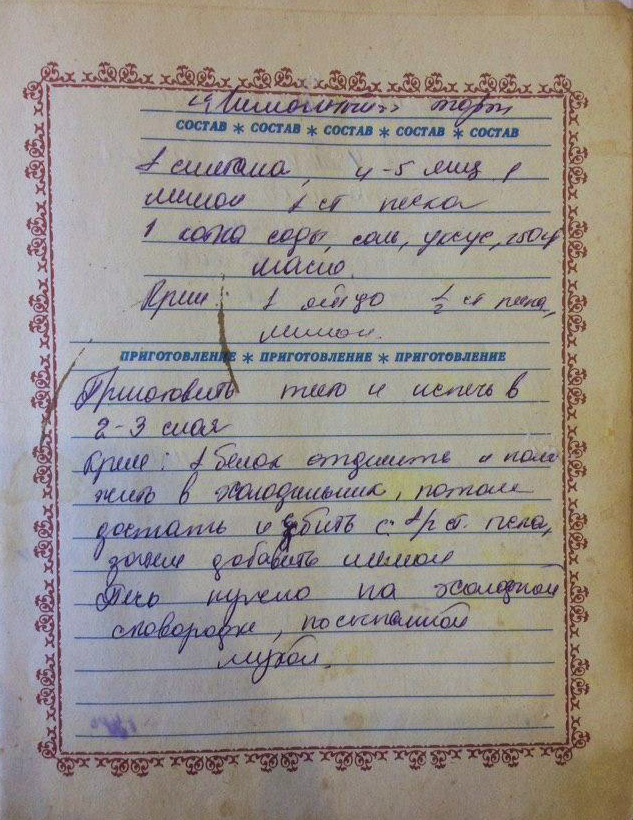 «Лимонный» торт
СОСТАВ * СОСТАВ * СОСТАВ * СОСТАВ * СОСТАВ
1 сметана, 4-5 яиц, 1
лимон 1 ст песка
1 ложка соды, соль, уксус, 250 гр
масло.
Крем: 1 яйцо 1/2 ст песка,
лимон.
ПРИГОТОВЛЕНИЕ * ПРИГОТОВЛЕНИЕ * ПРИГОТОВЛЕНИЕ
Приготовить тесто и испечь в
2-3 слоя
Крем: 1 белок отделить и поло
жить в холодильник, потом
достать и взбить с 1/2 ст. песка,
затем добавить лимон
Печь нужно на холодной
сковородке, посыпанной
мукой.